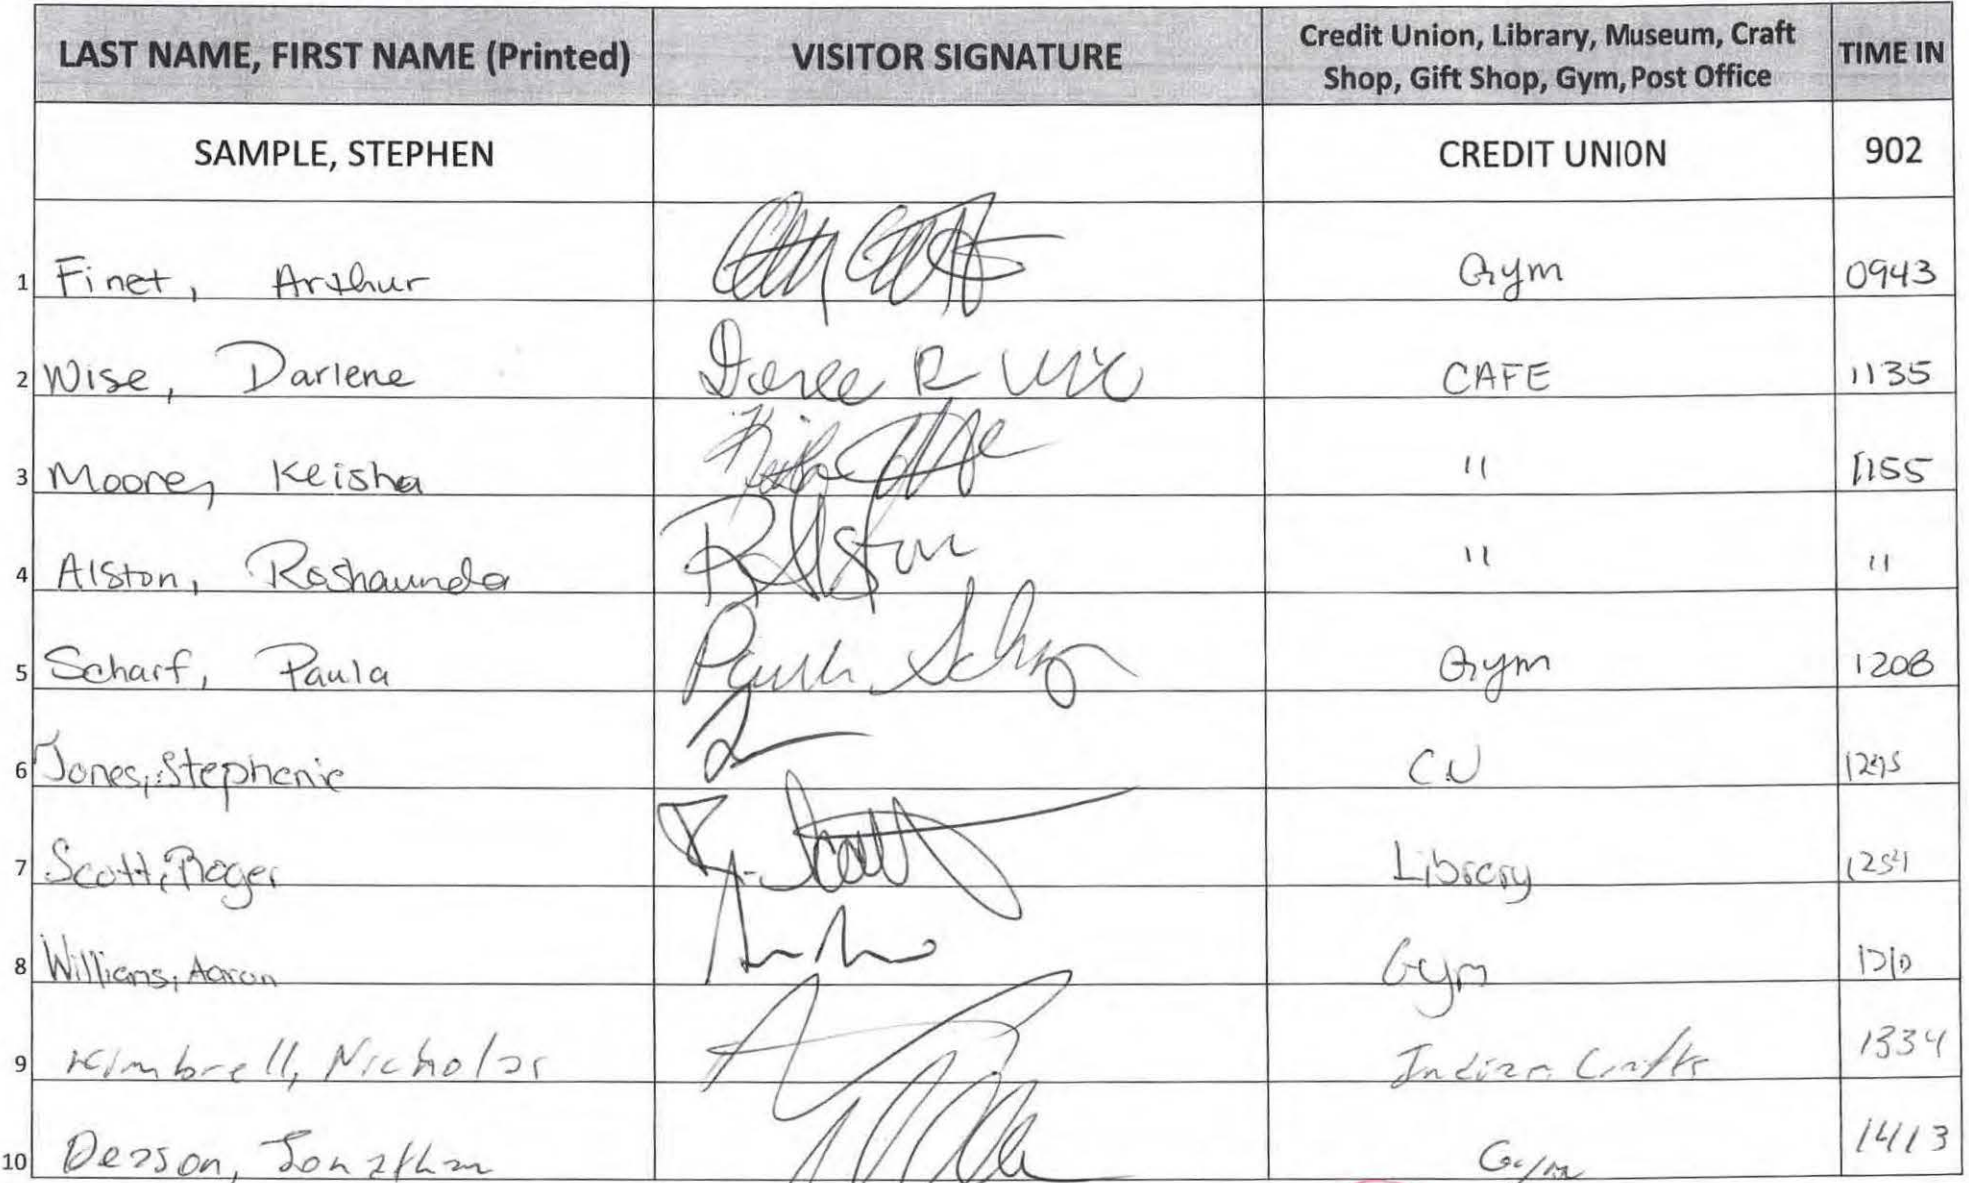 LAST NAME, FIRST NAME (Printed) VISITOR SIGNATURE Credit Union, Library, Museum, Craft Shop, Gift Shop, Gym, Post Office TIME IN
SAMPLE, STEPHEN CREDIT UNION 902
1 Finet, Arthur Gym 0943
2 Wise, Darlene CAFE 1135
3 Moore, Keisha " 1155
4 Alston, Roshaunda RAlston " "
5 Scharf, Paula Gym 1208
6 Jones, Stephenie CU
7 Scott, Roger Library 1254
8 Williams, Aaron Gym
9 Kimbrell, Nicholas Indian Crafts 1334
10 Jonathan Gym 1413